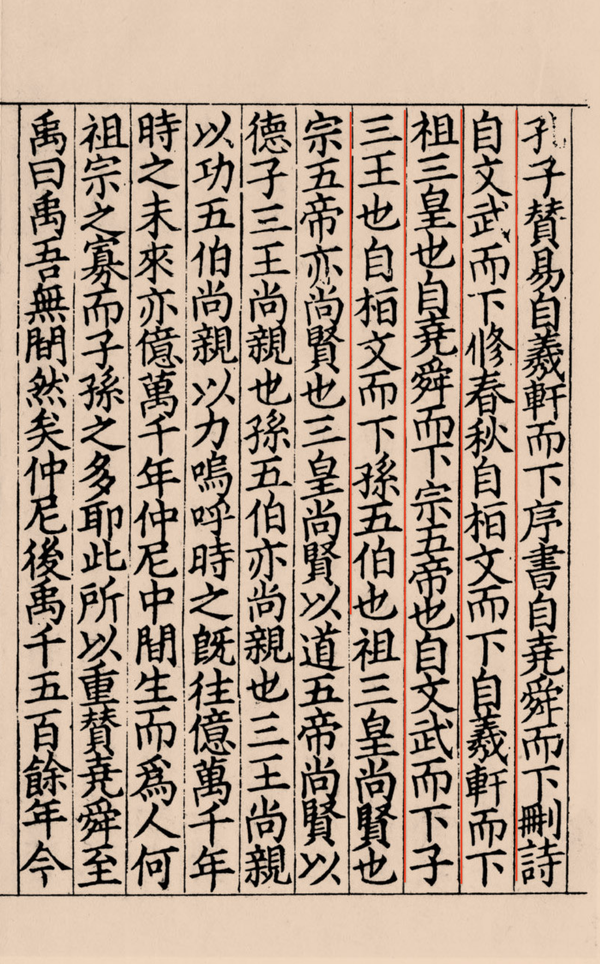 孔子賛易自羲軒而下序書自堯舜而下刪詩
自文武而下修春秋自桓文而下自羲軒而下
祖三皇也自堯舜而下宗五帝也自文武而下子
三王也自桓文而下孫五伯也祖三皇尚賢也
宗五帝亦尚賢也三皇尚賢以道五帝尚賢以
德子三王尚親也孫五伯亦尚親也三王尚親
以功五伯尚親以力嗚呼時之既往億萬千年
時之未來亦億萬千年仲尼中間生而爲人何
祖宗之寡而子孫之多耶此所以重賛堯舜至
禹曰禹吾無間然矣仲尼後禹千五百餘年今